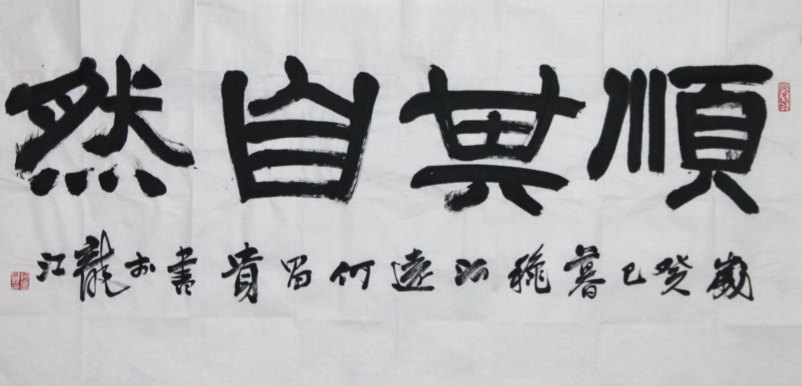 順其自然
歲癸巳暮穐遠何昌貴書於龍江